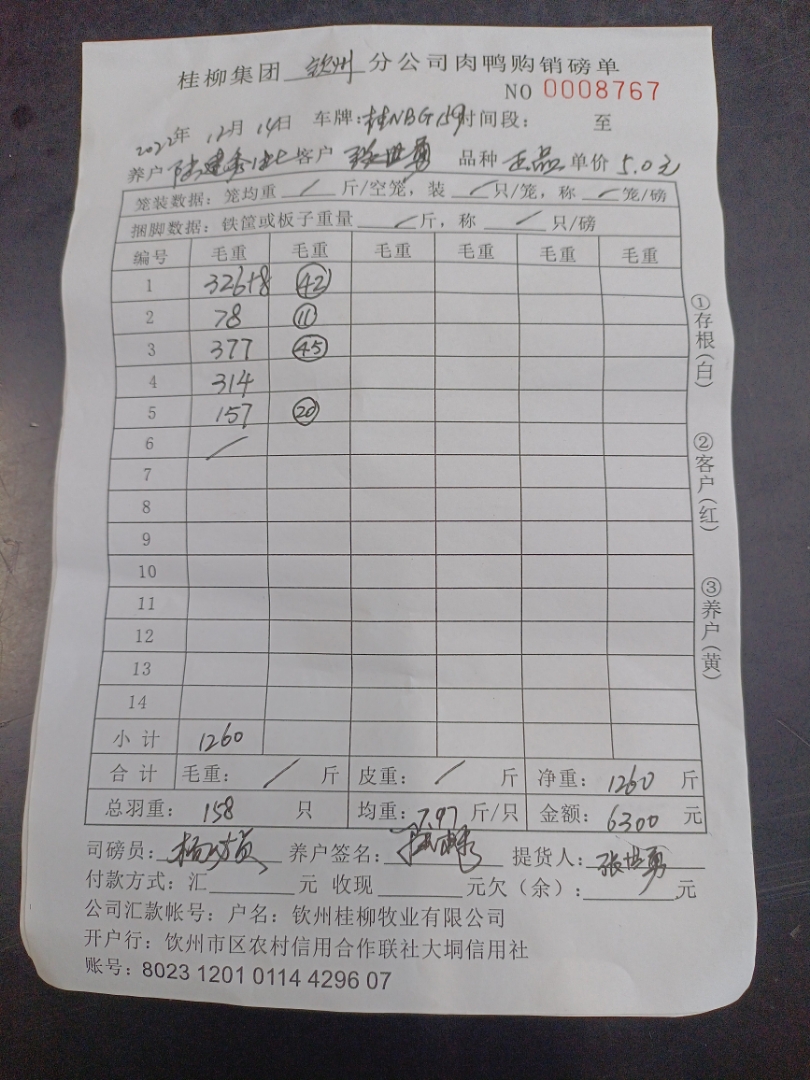 桂柳集团 钦州 分公司肉鸭购销磅单
NO 0008767
2022年 12月 14日 车牌:桂NBG159时间段: 至
养户 客户 张世勇 品种 正品 单价 5.0元
笼装数据: 笼均重 / 斤/空笼, 装 / 只/笼, 称 / 笼/磅
捆脚数据: 铁筐或板子重量 / 斤, 称 / 只/磅
编号 毛重 毛重 毛重 毛重 毛重 毛重
1 326+8 ㊷
2 78 ⑪
3 377 ㊺
4 314
5 157 ⑳
6 /
7
8
9
10
11
12
13
14
小计 1260
合计 毛重: / 斤 皮重: / 斤 净重: 1260 斤
总羽重: 158 只 均重: 7.97 斤/只 金额: 6300 元
司磅员: 养户签名: 提货人: 张世勇
付款方式: 汇 元 收现 元欠(余): 元
公司汇款帐号: 户名: 钦州桂柳牧业有限公司
开户行: 钦州市区农村信用合作联社大垌信用社
账号: 8023 1201 0114 4296 07
①存根(白)
②客户(红)
③养户(黄)